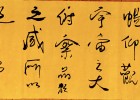 暢仰觀
宇宙之大
俯察品類
之盛所以